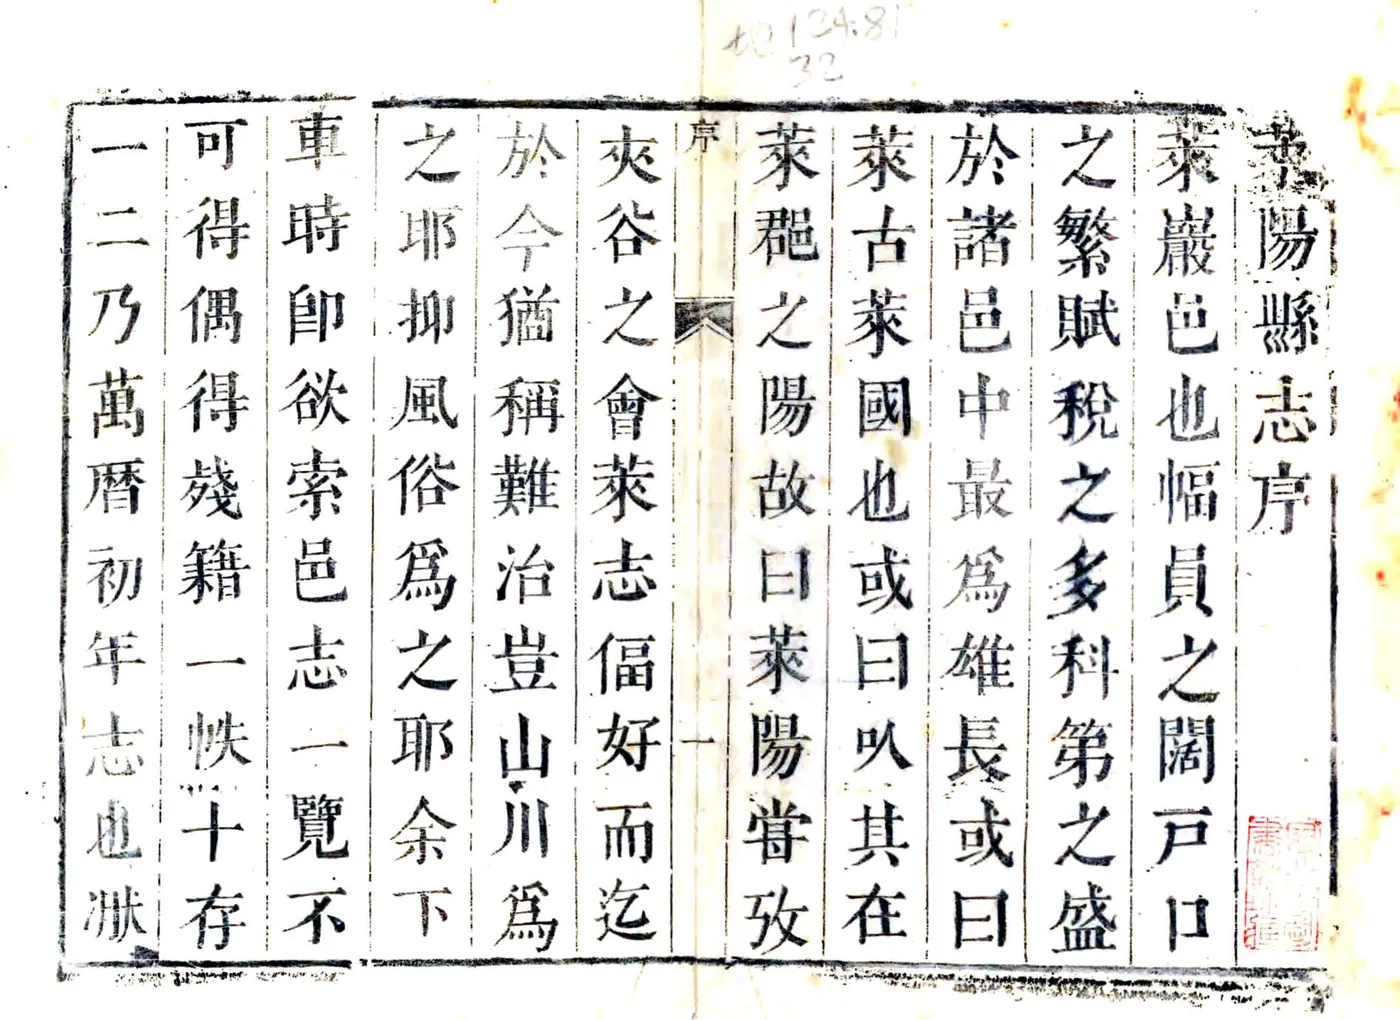 地 124:81
32
萊陽縣志序
萊巖邑也幅員之闊戸口
之繁賦稅之多科第之盛
於諸邑中最爲雄長或曰
萊古萊國也或曰㕥其在
萊郡之陽故曰萊陽甞攷
序 一
夾谷之會萊志偪好而迄
於今猶稱難治豈山川爲
之耶抑風俗爲之耶余下
車時卽欲索邑志一覽不
可得偶得殘籍一帙十存
一二乃萬曆初年志也猷